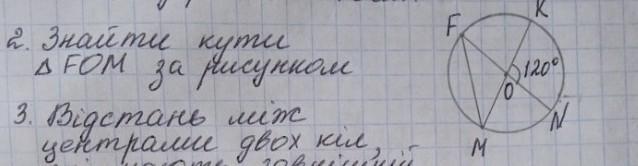 2. Знайти кути
△ FOM за рисунком
F
K
120°
O
N
M
3. Відстань між
центрами двох кіл,